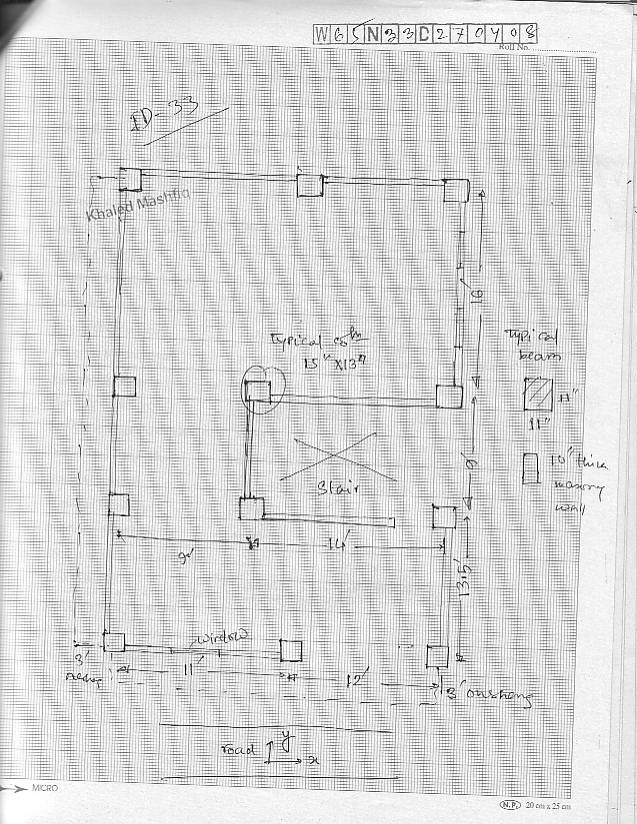 W65N33C270408
Roll No.
ID-33
Khaled Mashfiq
16'
Typical coln
15" X13"
Typical
beam
11"
11"
10" thick
masonry
wall
9'
Stair
9'
14'
13.5'
window
3'
11'
12'
3' overhang
road
y
x
MICRO
N.P. 20 cm x 25 cm